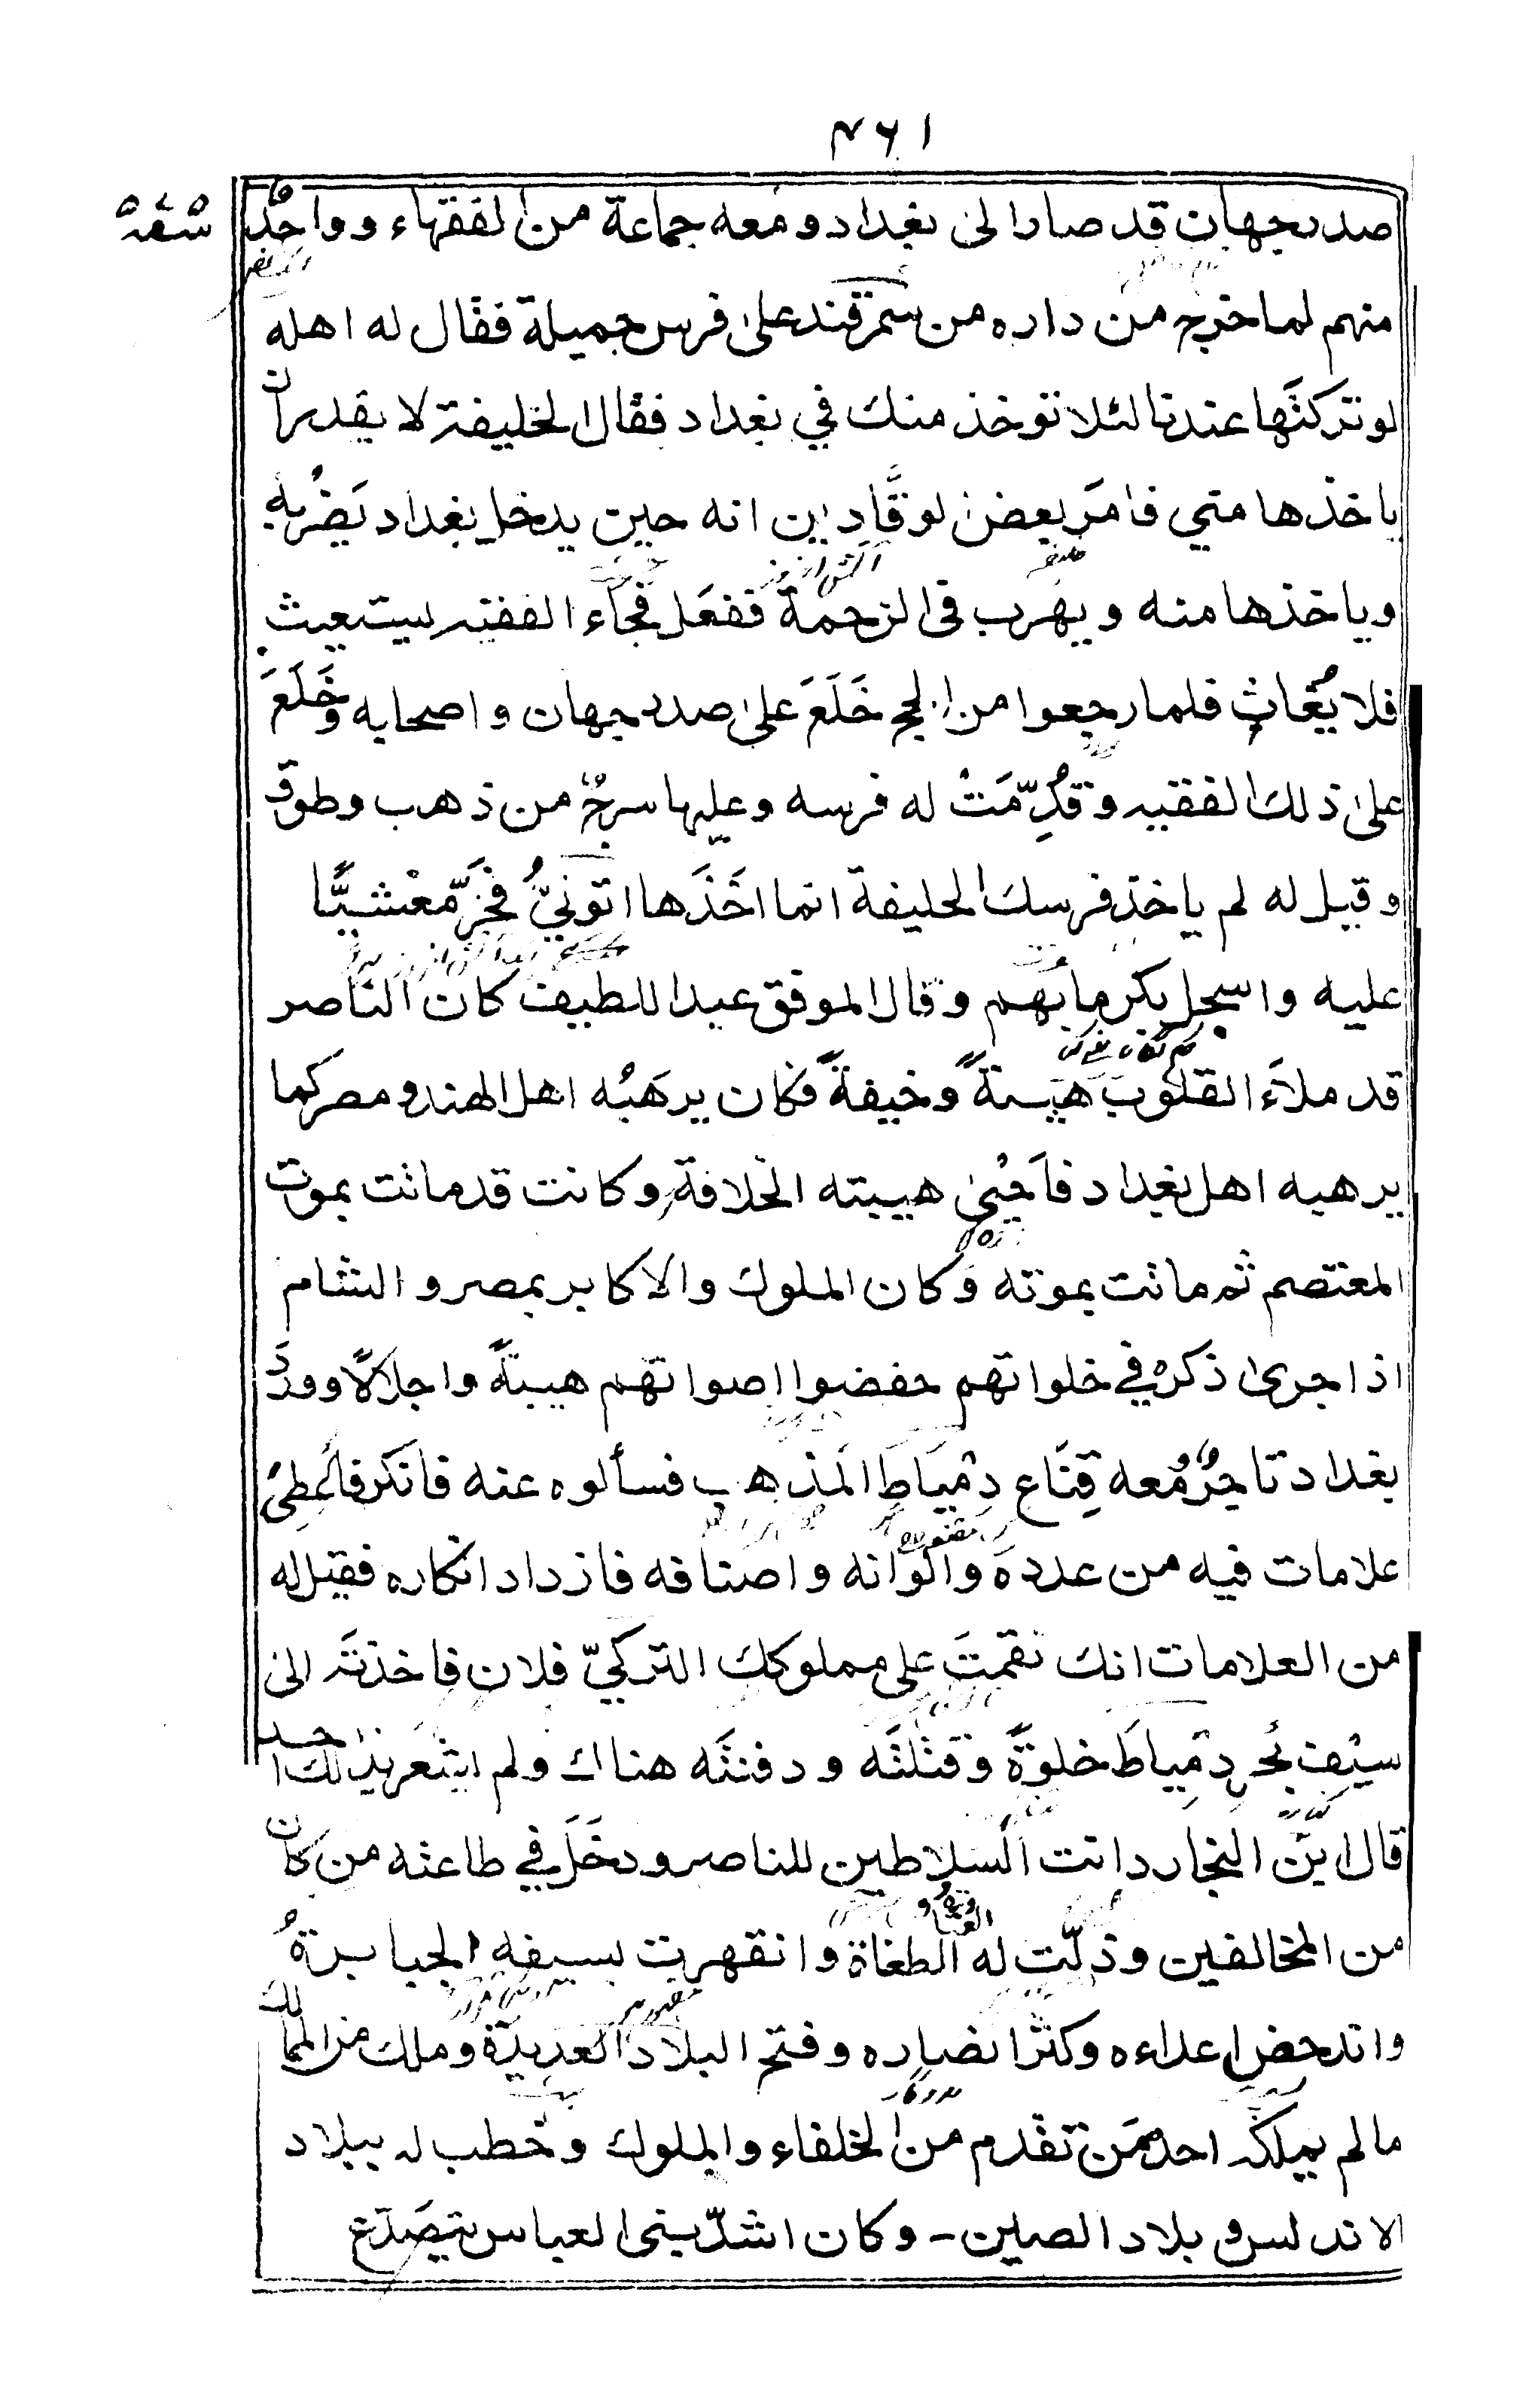 ۴۶۱
صدر جهان قد صار الى بغداد ومعه جماعة من الفقهاء وواحدٌ
منهم لما خرج من داره من سمرقند على فرس جميلة فقال له اهله
لو تركتَها عندنا لئلا توخذ منك في بغداد فقال الخليفة لا يقدر ان
ياخذها مني فامَر بعضَ لوقَّادين انه حين يدخل بغداد يَضْرِبه
وياخذها منه ويهرب فى الزحمة ففعَل فجاء الفقيه يستغيث
فلا يُغاث فلما رجعوا من الحج خَلَعَ على صدر جهان واصحابه وخَلَعَ
على ذلك الفقيه وقُدِّمَتْ له فرسه وعليها سرجٌ من ذهب وطوق
وقيل له لم ياخذ فرسك الخليفة انما اخَذَها اتونيٌّ فخرَّ مغشيًّا
عليه واسجل بكرماتهم وقال الموفق عبد اللطيف كان الناصر
قد ملاَءَ القلوبَ هيبةً وخيفةً فكان يرهَبُه اهل الهند و مصر كما
يرهبه اهل بغداد فاَحْيى هيبته الخلافة وكانت قد ماتت بموت
المعتصم ثم ماتت بموته وكان الملوك والاكابر بمصر و الشام
اذا جرى ذكره في خلواتهم خفضوا اصواتهم هيبةً واجلالاً ووردَ
بغداد تاجرٌ معه قِنَاع دِمْيَاطِ المذهب فسألوه عنه فانكر فاُعطِىَ
علامات فيه من عدده والوانه واصنافه فازداد انكاره فقيل له
من العلامات انك نقمتَ على مملوكك التركيّ فلان فاخذتَه الى
سيْف بحرِ دِمْياطَ خلوةً وقتلتَه ودفنتَه هناك ولم يشعر بذلك احد
قال ابن النجار دانت السلاطين للناصر ودخَلَ في طاعته من كان
من المخالفين وذلّت له العتاة و الطغاة وانقهرت بسيفه الجبابرةُ
واندحض اعداءه وكثر انصاره وفتح البلاد العديدة وملك من الممالك
ما لم يملكه احد ممن تقدم من الخلفاء والملوك وخطب له ببلاد
الاندلس و بلاد الصين - وكان اشدّ بنى العباس تيصدع